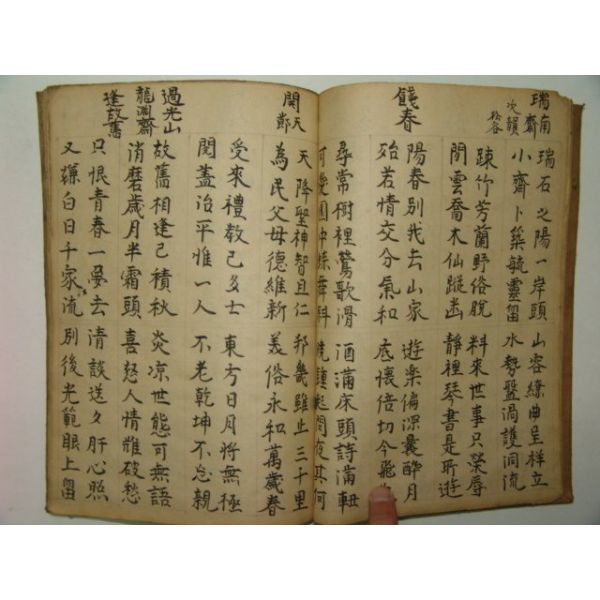 瑞南齋
次韻
瑞石之陽一岸頭 山容繚曲呈祥立
小齋卜築毓靈留 水勢盤渦護洞流
疎竹芳蘭野俗脫 料來世事只榮辱
間雲喬木仙蹤幽 靜裡琴書是所遊
餞春
陽春別我去山家 遊樂偏深囊醉月
殆若情交分氣和 底懷倍切今飛
尋常樹裡鶯歌滑 酒滿床頭詩滿軒
開天節
天降聖神智且仁 邦畿雖止三千里
為民父母德維新 義俗永和萬歲春
受來禮教已多士 東方日月將無極
開蓋治平惟一人 不老乾坤不忘親
過光山
龍淵齋
逢故舊
故舊相逢已積秋 炎凉世態可無語
消磨歲月半霜頭 喜怒人情難破愁
只恨青春一夢去 清談送夕肝心照
又嫌白日千家流 別後光範眼上留